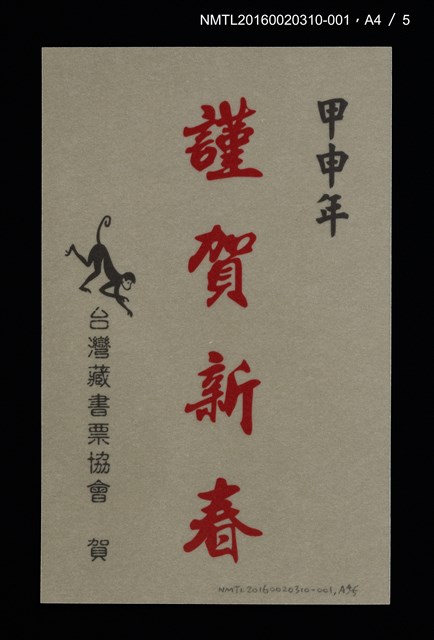 NMTL20160020310-001，A4 / 5
甲申年
謹賀新春
台灣藏書票協會 賀
NMTL20160020310-001, A4/5